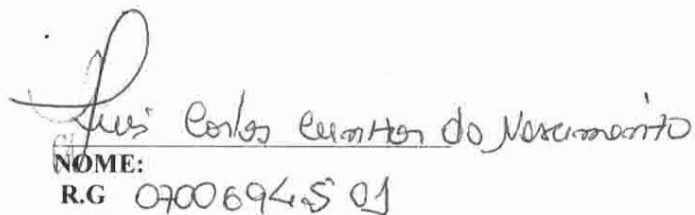 Luis Carlos Cunha do Nascimento
NOME:
R.G 0700694501